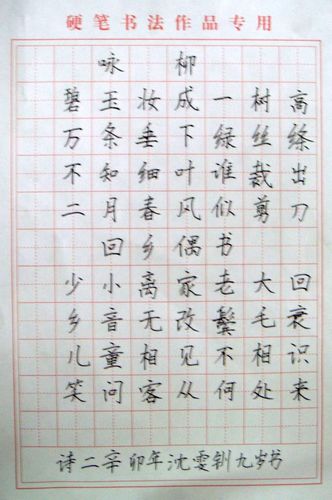 硬笔书法作品专用
咏柳
碧玉妆成一树高
万条垂下绿丝绦
不知细叶谁裁出
二月春风似剪刀
回乡偶书
少小离家老大回
乡音无改鬓毛衰
儿童相见不相识
笑问客从何处来
诗二辛卯年沈雯钊九岁书